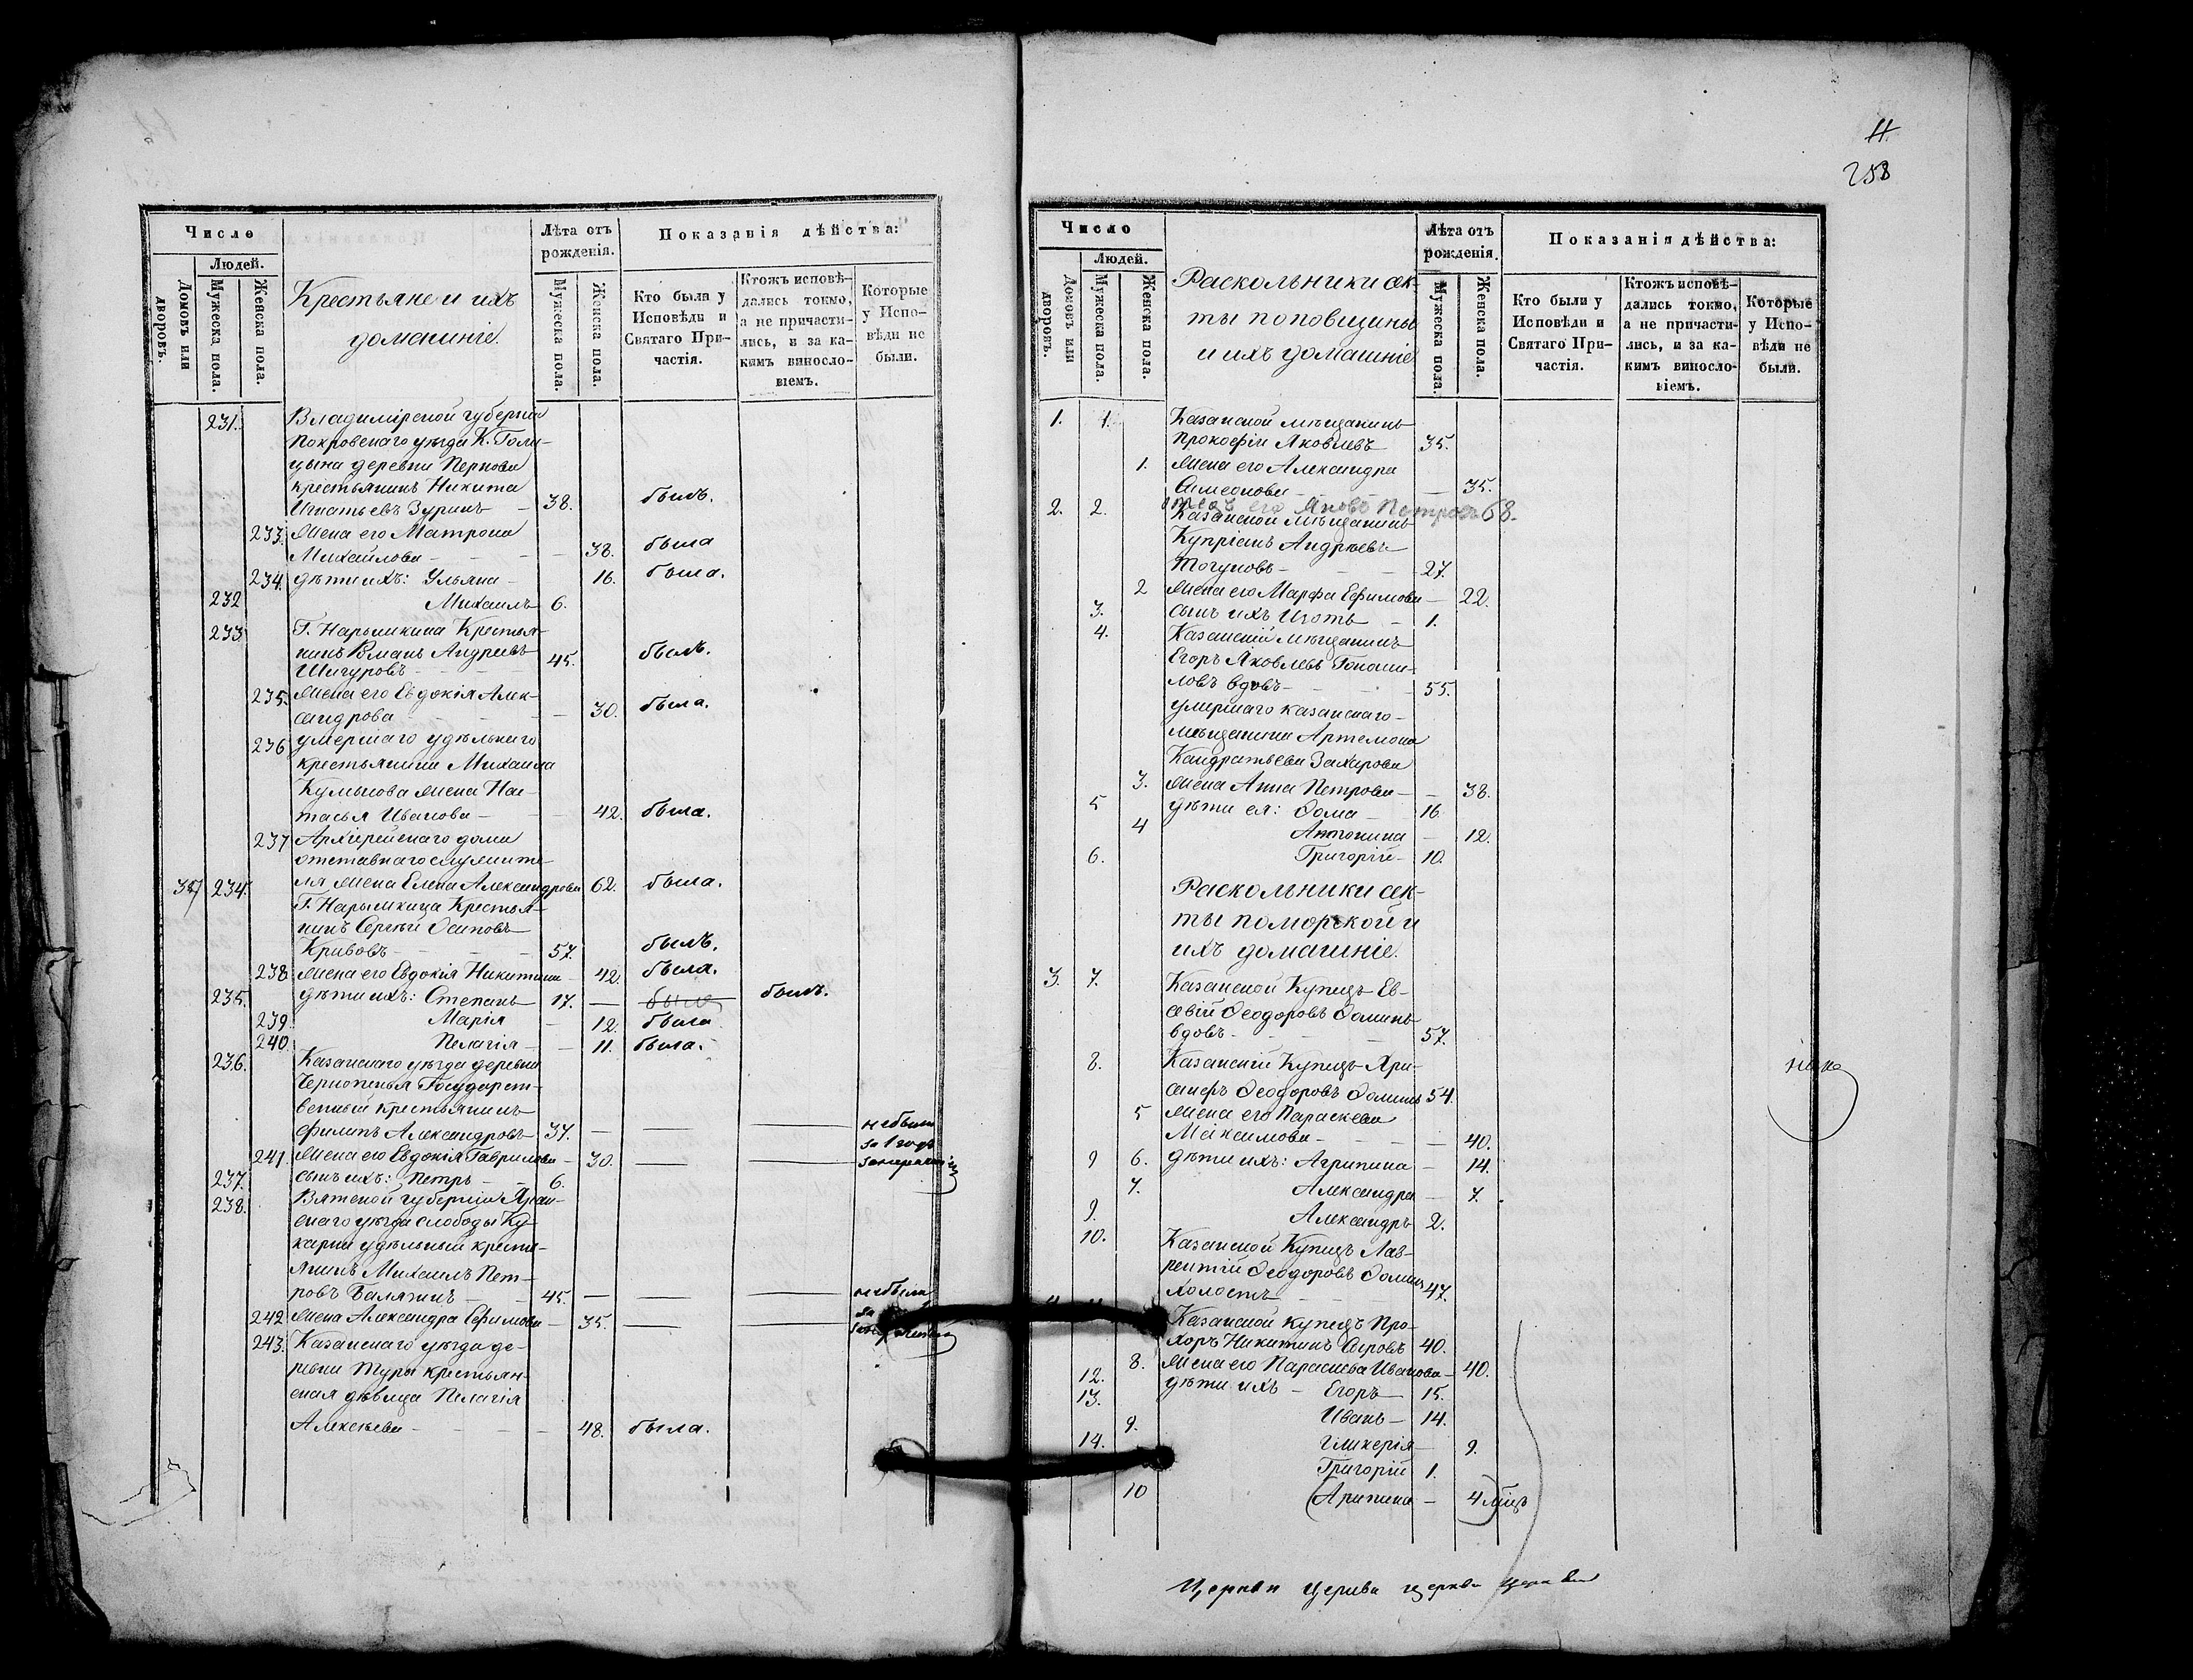 Число
Людей.
Домовъ или дворовъ.
Мужеска пола.
Женска пола.
Крестьяне и ихъ
домашніе.
Лѣта отъ рожденія.
Мужеска пола.
Женска пола.
Показанія дѣйства:
Кто были у Исповѣди и Святаго Причастія.
Ктожъ исповѣдались токмо, а не причастились, и за какимъ винословіемъ.
Которые у Исповѣди не были.
231. Владимірской губерніи
Покровскаго уѣзда К. Голи-
цына деревни Перновы
крестьянинъ Никита
Игнатьевъ Зуринъ 38. былъ.
233. Жена его Матрона
Михайлова 38. была
234. дѣти ихъ: Ульяна 16. была.
232 Михаилъ 6.
233. Г. Нарышкина Крестья-
нинъ Романъ Андреевъ 45. былъ.
Шигуровъ
235. Жена его Евдокія Алек-
сандрова 30. была.
236 умершаго удѣльнаго
крестьянина Михаила
Кумысова жена Нас-
тасья Иванова 42. была.
237 Архіерейскаго дома
отставнаго служите-
ля жена Елена Александрова 62. была.
234. Г. Нарышкина Крестья-
нинъ Сергѣй Осиповъ
Кривовъ 57. былъ.
238. жена его Евдокія Никитина 42. была.
235. дѣти ихъ: Степанъ 17. былъ.
239. Марія 12. была
240. Пелагія 11. была.
236. Казанскаго уѣзда деревни
Чернопенья Государст-
венный крестьянинъ
Филипъ Александровъ 37. небыли
за 1 годъ
241. Жена его Евдокія Гаврилова 30.
237. сынъ ихъ: Петръ 6.
238. Вятской губерніи Яран-
скаго уѣзда слободы Ку-
карки удѣльный крест-
янинъ Михаилъ Пет-
ровъ 45. небыли
242 Жена Александра Ефимова 35.
243. Казанскаго уѣзда де-
ревни Туры крестьян-
ская дѣвица Пелагія
Алексѣева 48. была.
11.
258
Число
Людей.
Домовъ или дворовъ.
Мужеска пола.
Женска пола.
Раскольники сек-
ты поповщины
и ихъ домашніе
Лѣта отъ рожденія.
Мужеска пола.
Женска пола.
Показанія дѣйства:
Кто были у Исповѣди и Святаго Причастія.
Ктожъ исповѣдались токмо, а не причастились, и за какимъ винословіемъ.
Которые у Исповѣди не были.
1. 1. Казанской мѣщанинъ
Прокофій Яковлевъ 35.
1. Жена его Александра
Симеонова 35.
отецъ его Яковъ Петровъ 68.
2. 2. Казанской мѣщанинъ
Купріанъ Андреевъ
Тогуновъ 27.
2 Жена его Марфа Ефимова 22.
3. сынъ ихъ Изотъ 1.
4. Казанскій мѣщанинъ
Егоръ Яковлевъ
вдовъ 55.
умершаго казанскаго
мѣщанина Артемона
Кандратьева Захарова
3. жена Анна Петрова 38.
5 дѣти ея: Фома 16.
4 Антонина 12.
6. Григорій 10.
Раскольники сек-
ты поморской и
ихъ домашніе.
3. 7. Казанской Купецъ Ев-
севій Феодоровъ Фоминъ
вдовъ 57.
8. Казанскій Купецъ Хри-
санфъ Феодоровъ Фоминъ 54.
5 Жена его Параскева
Максимова 40.
6. дѣти ихъ: Агрипина 14.
7. Александра 7.
9. Александръ 2.
10. Казанской Купецъ Лав-
рентій Феодоровъ Фоминъ
холостъ 47.
Казанской купецъ Про-
хоръ Никитинъ 40.
8. Жена его Параскева Иванова 40.
12. дѣти ихъ Егоръ 15.
13. Иванъ 14.
9. Гликерія 9.
14. Григорій 1.
10 (Арипина 4) мѣс
Церкви Церкви церкви церкви